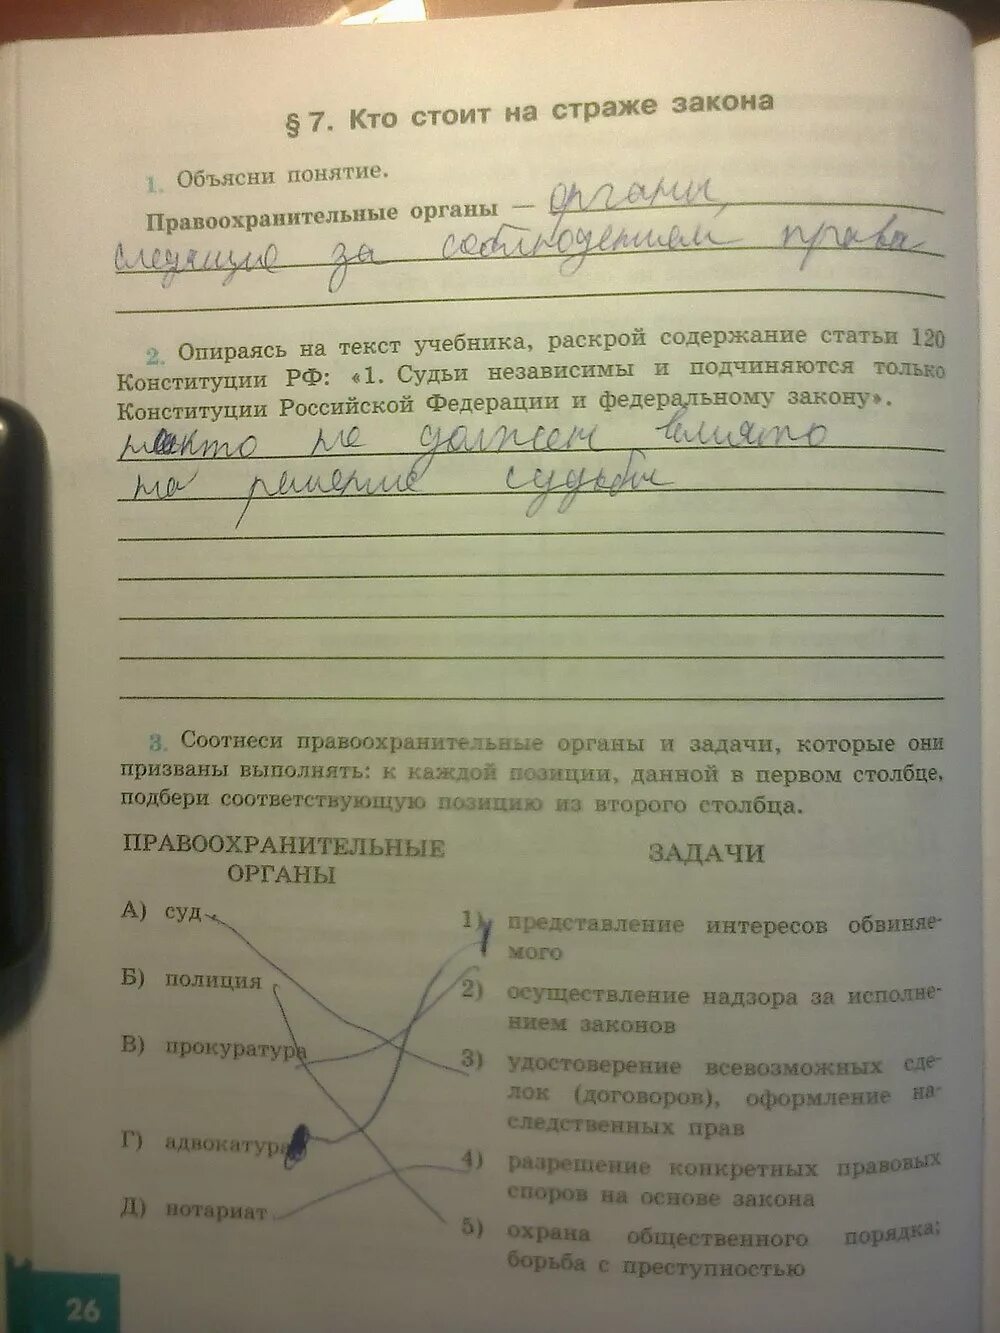 § 7. Кто стоит на страже закона
1. Объясни понятие.
Правоохранительные органы — органы,
следящие за соблюдением права
2. Опираясь на текст учебника, раскрой содержание статьи 120
Конституции РФ: «1. Судьи независимы и подчиняются только
Конституции Российской Федерации и федеральному закону».
никто не должен влиять
на решение судьбы
3. Соотнеси правоохранительные органы и задачи, которые они
призваны выполнять: к каждой позиции, данной в первом столбце,
подбери соответствующую позицию из второго столбца.
ПРАВООХРАНИТЕЛЬНЫЕ
ОРГАНЫ
А) суд
Б) полиция
В) прокуратура
Г) адвокатура
Д) нотариат
ЗАДАЧИ
1) представление интересов обвиняе-
мого
2) осуществление надзора за исполне-
нием законов
3) удостоверение всевозможных сде-
лок (договоров), оформление на-
следственных прав
4) разрешение конкретных правовых
споров на основе закона
5) охрана общественного порядка;
борьба с преступностью
26